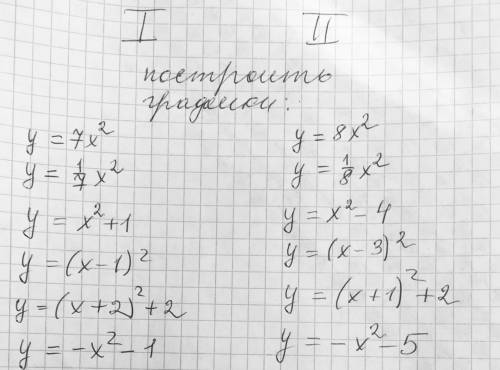 I II
построить
графики:
y = 7x²
y = 1/7 x²
y = x² + 1
y = (x - 1)²
y = (x + 2)² + 2
y = -x² - 1
y = 8x²
y = 1/8 x²
y = x² - 4
y = (x - 3)²
y = (x + 1)² + 2
y = -x² - 5